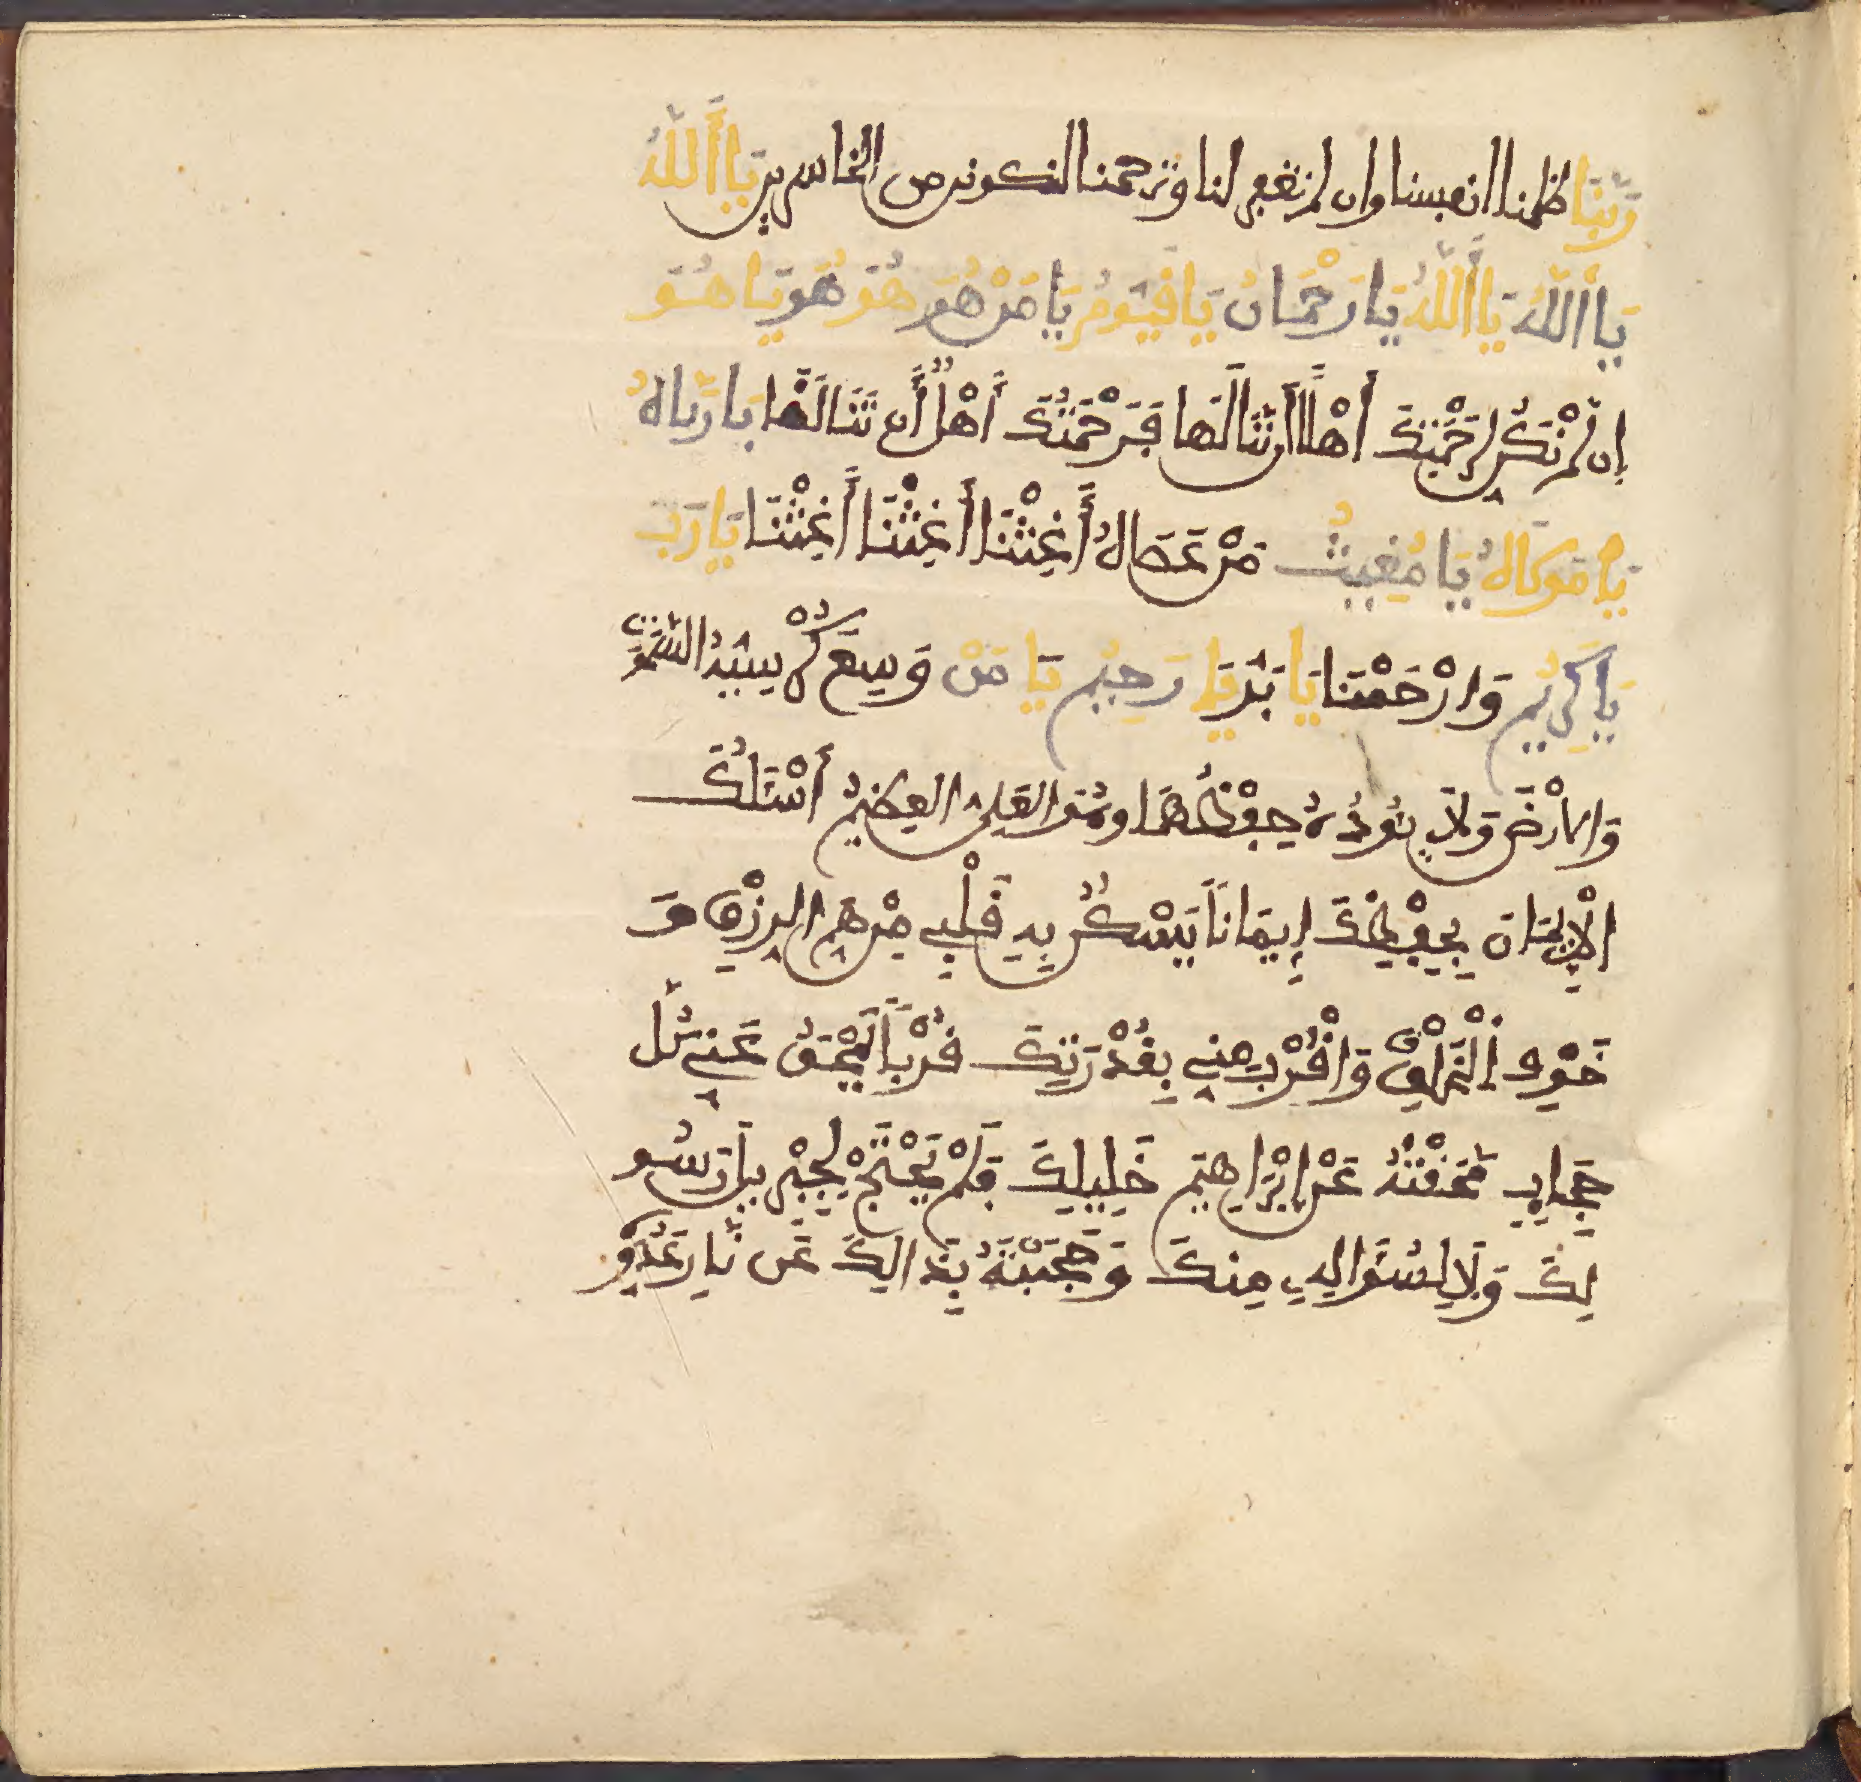 رَبَّنَا ظلمنا انفسنا وان لم تغفر لنا وترحمنا لنكونن من الخاسرين يَا أَللَّهُ
يَا أَللَّهُ يَا أَللَّهُ يَا رَحْمَانُ يَا قَيُّومُ يَا مَنْ هُوَ هُوَ هُوَ يَا هُوَ
إِن لَّمْ نَكُن لِرَحْمَتِكَ أَهْلًا أَن نَنَالَهَا فَرَحْمَتُكَ أَهْلٌ أَن تَنَالَنَا يَا رَبَّاهُ
يَا مَوْلَاهُ يَا مُغِيثَ مَنْ عَصَاهُ أَغِثْنَا أَغِثْنَا أَغِثْنَا يَا رَبِّ
يَا كَرِيمُ وَارْحَمْنَا يَا بَرُّ يَا رَحِيمُ يَا مَنْ وَسِعَ كُرْسِيُّهُ السَّمَوَاتِ
وَالْأَرْضَ وَلَا يَئُودُهُ حِفْظُهُمَا وَهُوَ الْعَلِيُّ الْعَظِيمُ أَسْئَلُكَ
الْإِيمَانَ بِحِفْظِكَ إِيمَانًا يَسْكُنُ بِهِ قَلْبِي مِنْ هَمِّ الرِّزْقِ وَ
خَوْفِ الْخَلْقِ وَاقْرُبْ مِنِّي بِقُدْرَتِكَ قُرْبًا تَمْحَقُ عَنِّي كُلَّ
حِجَابٍ مَحَقْتَهُ عَنْ إِبْرَاهِيمَ خَلِيلِكَ فَلَمْ يَحْتَجْ لِجِبْرِيلَ رَسُو
لِكَ وَلَا لِسُؤَالِهِ مِنكَ وَحَجَبْتَهُ بِذَالِكَ عَن نَّارِ عَدُوِّ